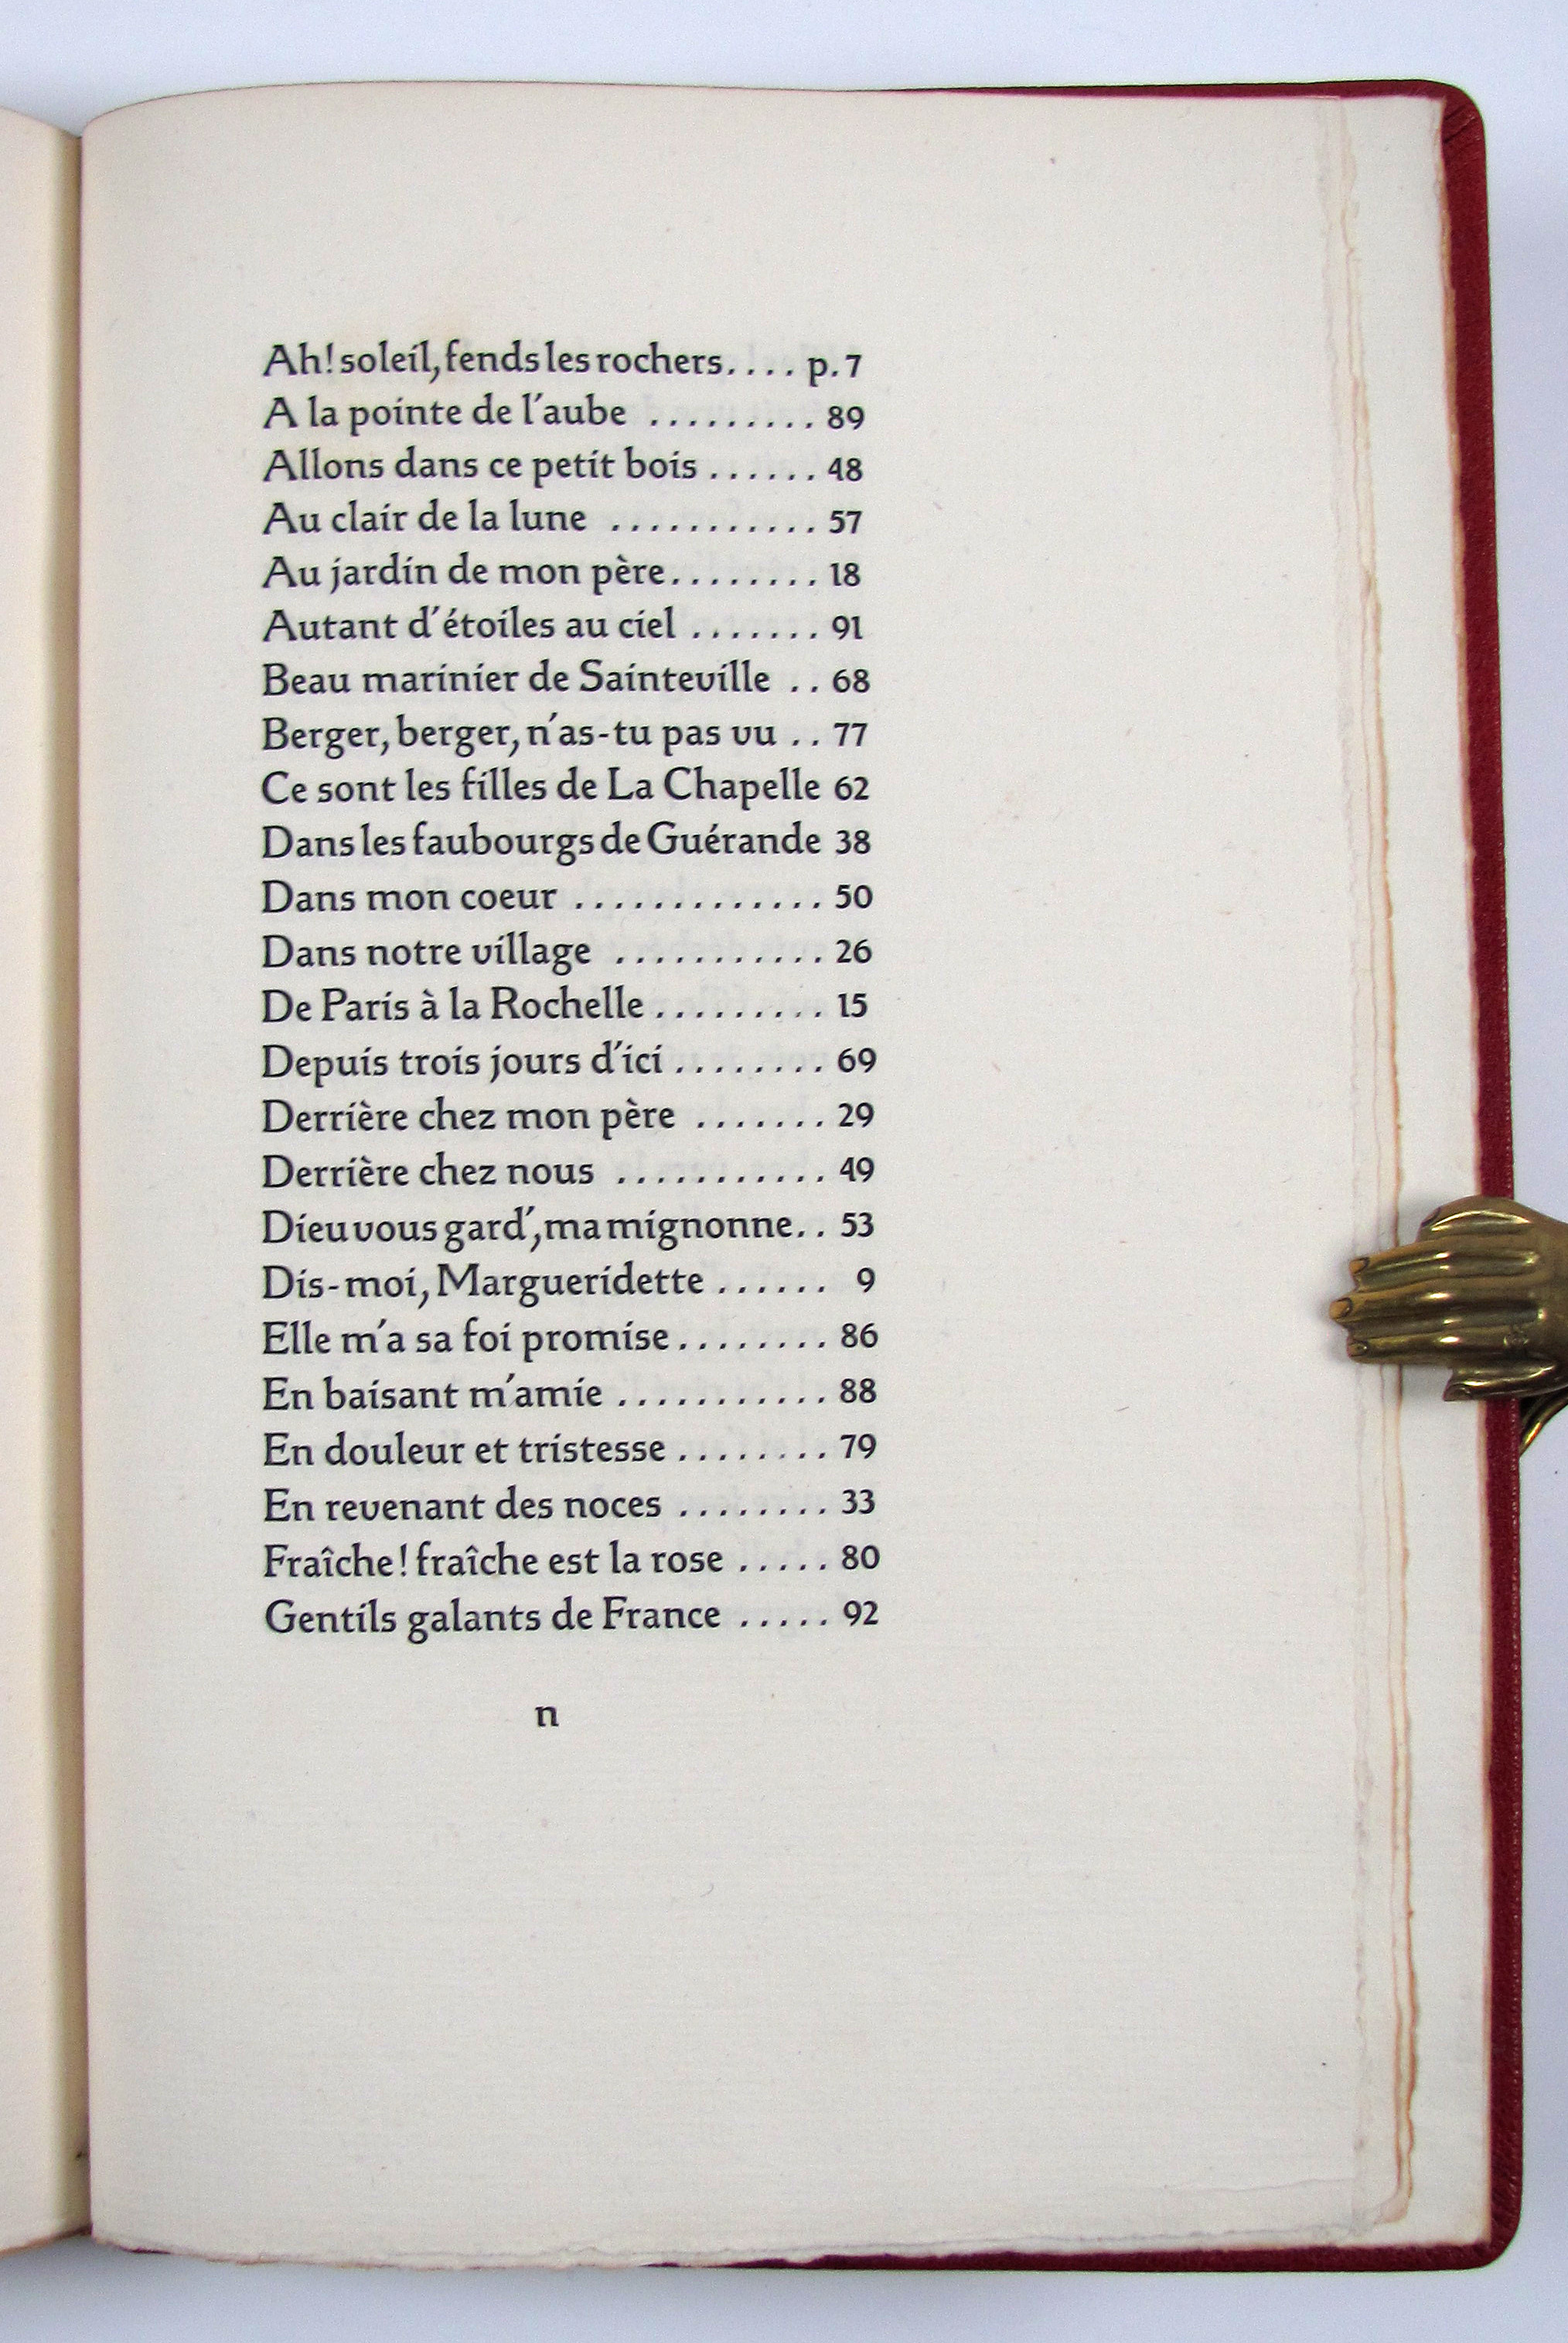 Ah! soleil, fends les rochers.... p. 7
A la pointe de l'aube ......... 89
Allons dans ce petit bois ...... 48
Au clair de la lune ........... 57
Au jardin de mon père........ 18
Autant d'étoiles au ciel ....... 91
Beau marinier de Sainteville .. 68
Berger, berger, n'as-tu pas vu .. 77
Ce sont les filles de La Chapelle 62
Dans les faubourgs de Guérande 38
Dans mon coeur ............. 50
Dans notre village ........... 26
De Paris à la Rochelle ......... 15
Depuis trois jours d'ici ........ 69
Derrière chez mon père ....... 29
Derrière chez nous ........... 49
Dieu vous gard', ma mignonne.. 53
Dis-moi, Margueridette ...... 9
Elle m'a sa foi promise........ 86
En baisant m'amie ........... 88
En douleur et tristesse ........ 79
En revenant des noces ........ 33
Fraîche! fraîche est la rose ..... 80
Gentils galants de France ..... 92
n